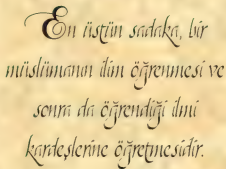 En üstün sadaka, bir
müslümanın ilim öğrenmesi ve
sonra da öğrendiği ilmi
kardeşlerine öğretmesidir.